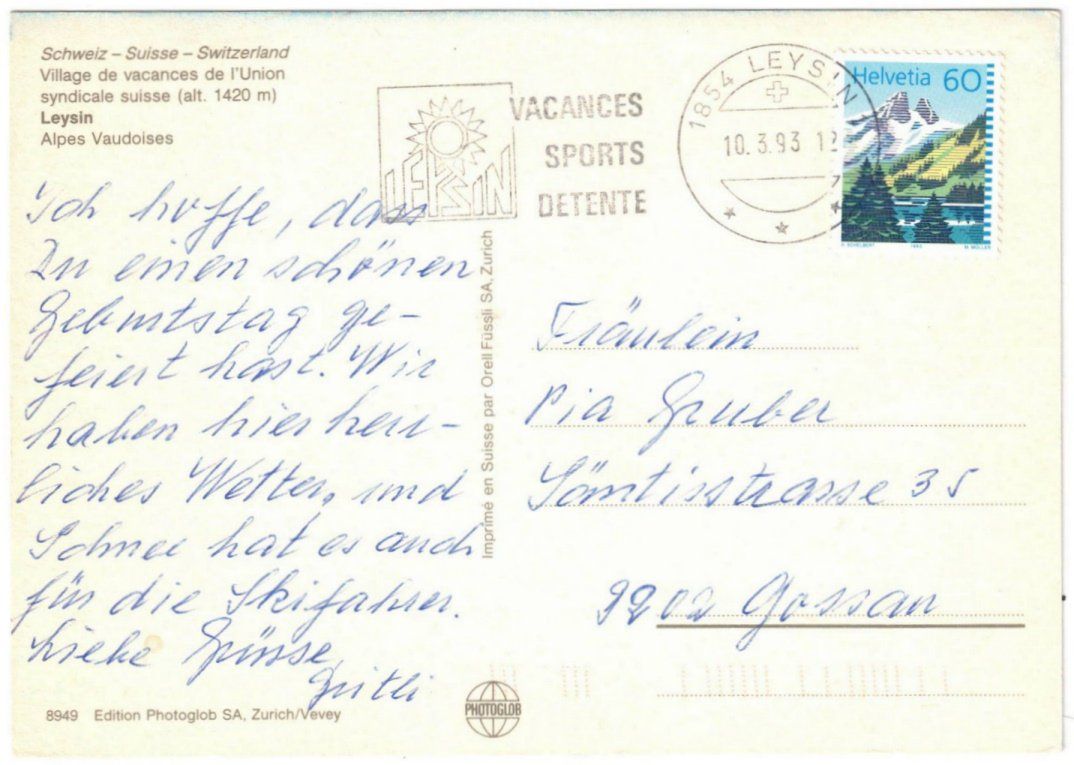 Schweiz – Suisse – Switzerland
Village de vacances de l'Union
syndicale suisse (alt. 1420 m)
Leysin
Alpes Vaudoises
LEYSIN
VACANCES
SPORTS
DETENTE
1854 LEYSIN
10.3.93 12
Helvetia 60
Ich hoffe, dass
Du einen schönen
Geburtstag ge-
feiert hast. Wir
haben hier herr-
liches Wetter, und
Schnee hat es auch
für die Skifahrer.
Liebe Grüsse
Gritli
Imprimé en Suisse par Orell Füssli SA, Zurich
Fräulein
Pia Gruber
Säntisstrasse 35
9202 Gossau
8949 Edition Photoglob SA, Zurich/Vevey
PHOTOGLOB